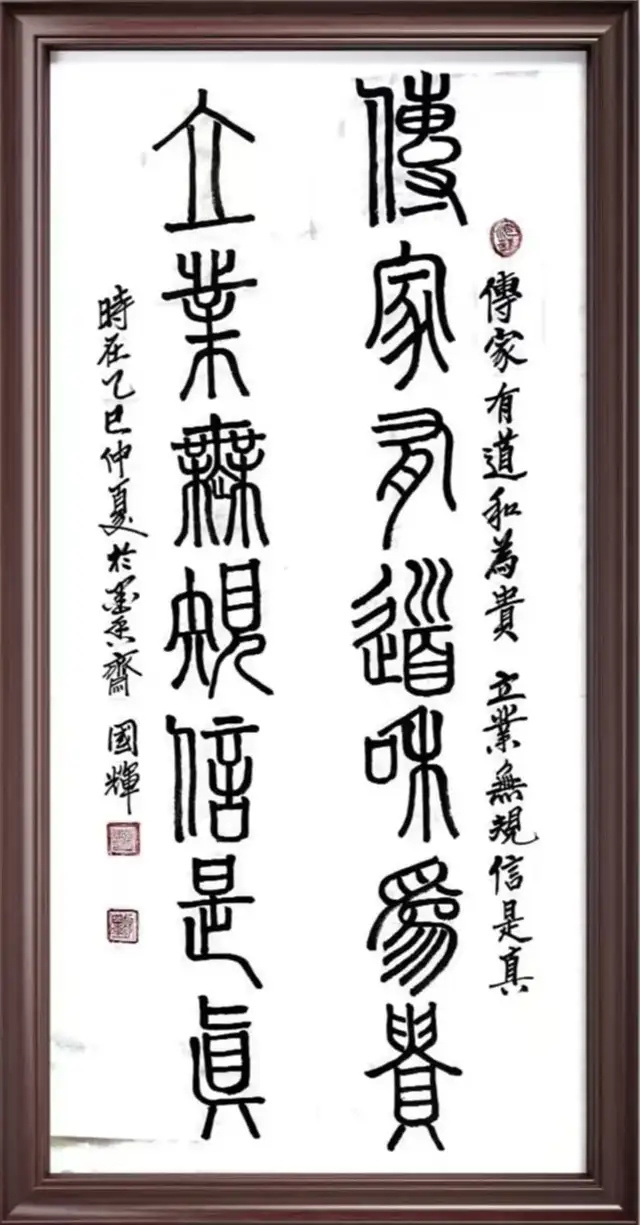 傳家有道和為貴
立業無規信是真
傳家有道和為貴 立業無規信是真
時在乙巳仲夏於墨香齋 國輝